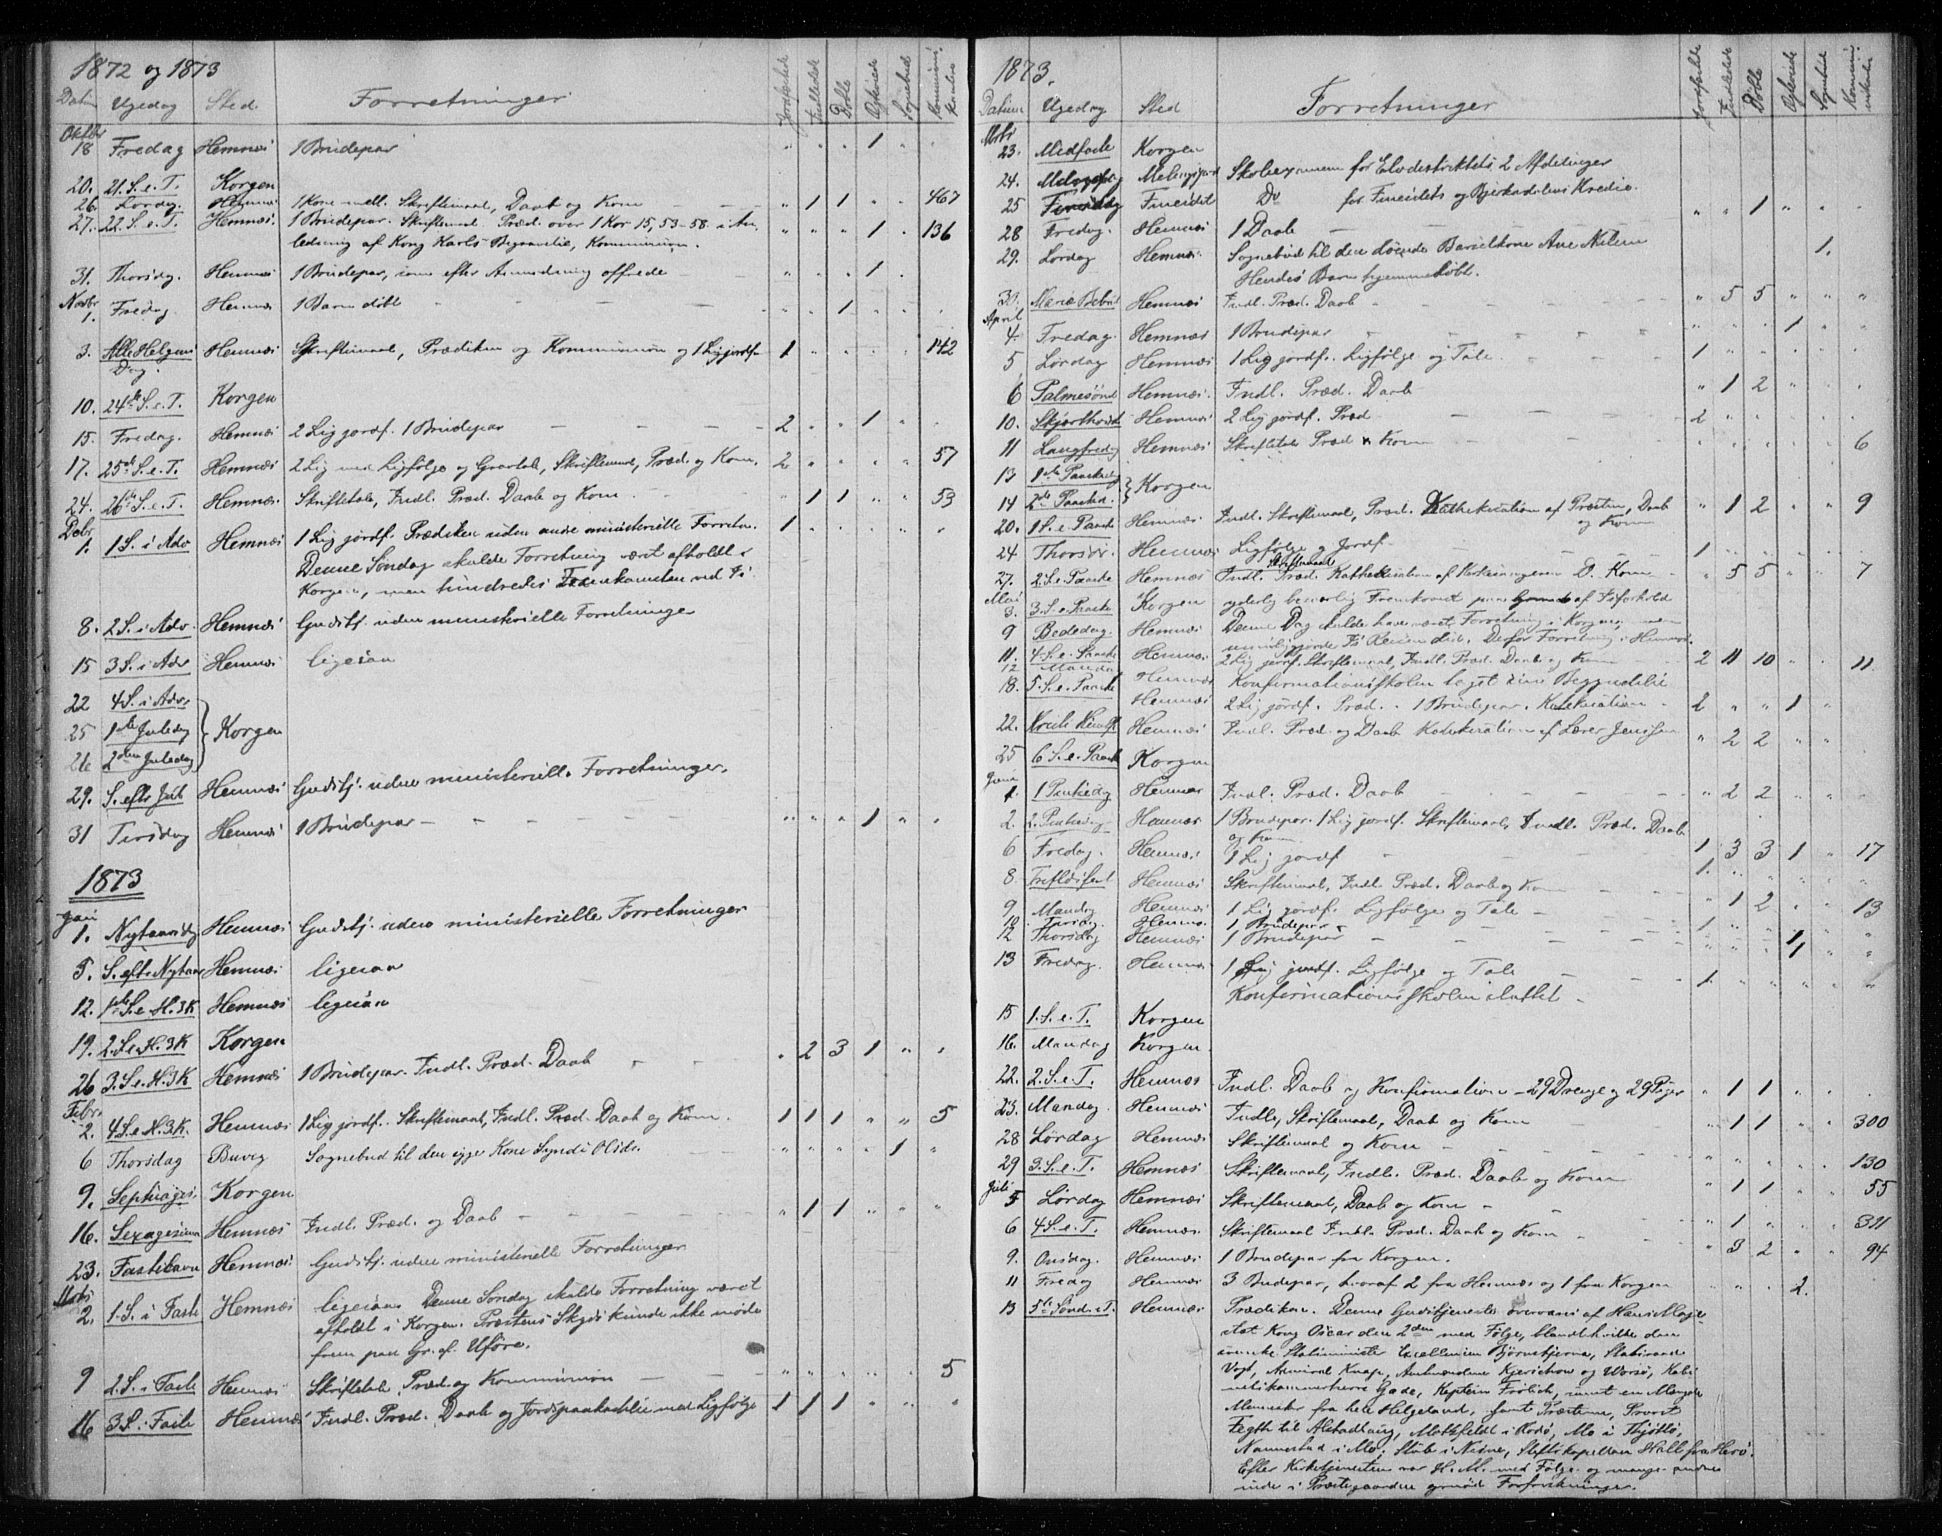 1872 og 1873
Datum Ugedag Sted. Forretninger Jordfæstede Indledede Døbte Ægteviede Sognebud Kommuni- kanter
Oktbr
18 Fredag Hemnæs 1 Brudepar " " " 1 " "
20. 21. S. e. T. Korgen
26. Lørdag. Hemnæs 1 Kone indl. Skriftemaal, Daab og Kom - - - " 1 1 " " 467
27. 22. S. e. T. Hemnæs. 1 Brudepar. Skriftemaal Præd. over 1 Kor 15, 53-58 i An- " " " 1 " 136
ledning af Kong Karls Begravelse, Kommunion.
31. Thorsdag. Hemnæs 1 Brudepar, som efter Anmodning offrede - " " " 1 "
Novbr
1. Fredag Hemnæs 1 Barn döbt - - - " " 1 " " "
3. Alle Helgens Hemnæs Skriftemaal, Prædiken og Kommunion og 1 Lig jordf. 1 " " " " 142
Dag.
10. 24de S. e. T. Korgen
15. Fredag. Hemnæs 2 Lig jordf. 1 Brudepar - - - 2 " " 1 " "
17. 25de S. e. T. Hemnæs 2 Lig med Ligfølge og Gravtale, Skriftemaal, Præd. og Kom. 2 " " " " 57
24. 26de S. e. T. Hemnæs. Skriftetale, Indl. Præd. Daab og Kom - " 1 1 " " 53
Debr
1. 1 S. i Adv Hemnæs 1 Lig jordf. Prædiken uden andre ministerielle Forretn. 1 " " " " "
Denne Søndag skulde Forretning været afholdt i
Korgen, men hindredes Fremkomsten ved Is.
8. 2 S. i Adv. Hemnæs Gudstj. uden ministerielle Forretninger
15 3 S. i Adv Hemnæs ligesaa
22 4 S. i Adv.
25 1ste Juledag } Korgen
26 2den Juledag
29. S. eftr Jul Hemnæs Gudstj. uden ministerielle Forretninger.
31 Tirsdag Hemnæs 1 Brudepar - - - " " " 1 " "
1873
Jan
1. Nytaarsdg Hemnæs Gudstj. uden ministerielle Forretninger
5. S. eftr Nytaar Hemnæs ligesaa
12. 1ste S. e. H. 3 K Hemnæs ligesaa
19. 2. S. e. H. 3 K Korgen
26 3. S. e. H. 3 K Hemnæs 1 Brudepar. Indl. Præd. Daab - - " 2 3 1 " "
Febr.
2. 4 S. e. H. 3 K. Hemnæs 1 Lig jordf. Skriftemaal, Indl. Præd. Daab og Kom. 1 1 1 " " 5
6 Thorsdag Buvig Sognebud til den syge Kone Synde Olsdr. - - 1 "
9. Septuages. Korgen
16. Sexagesima Hemnæs Indl. Præd. og Daab - - - " 1 1 " " "
23. Fastelavn Hemnæs Gudstj. uden ministerielle Forretninger
Marts
2. 1. S. i Faste Hemnæs ligesaa Denne Søndag skulde Forretning været
afholdt i Korgen. Præstens Skyds kunde ikke møde
frem paa Gr. af Uføre.
9 2. S. i Faste Hemnæs Skriftetale, Præd. og Kommunion - - - " " " " " 5
16 3 S. Faste Hemnæs Indl. Præd. Daab og Jordspaakastelse med Ligfølge 1 1 1 " " "
1873.
Datum Ugedag Sted Forretninger Jordfæstede Indledede Døbte Ægteviede Sognebud Kommuni- kanter
Mrts
23. Midfaste Korgen
24. Skoleexamen for Elvedistriktets 2 Afdelinger
25 Fineidet Do for Fineidets og Bjerkadalens Kredse.
28 Fredag. Hemnæs 1 Daab - - - " " 1 " " "
29. Lørdag Hemnæs. Sognebud til den døende Barselkone Ane Nilsen 1.
Hendes Barn hjemmedøbt.
30. Mariæ Bebud Hemnæs Indl. Præd. Daab - - - " 5 5 " " "
April
4. Fredag. Hemnæs 1 Brudepar - - - " " " 1 " "
5 Lørdag Hemnæs 1 Lig jordf. Ligfølge og Tale - - 1 " " " " "
6 Palmesønd Hemnæs. Indl. Præd. Daab " 1 2 " " "
10. Skjærthorsd Hemnæs 2 Lig jordf. Præd - - - 2 " " " " "
11 Langfredag Hemnæs Skriftetale Præd & Kom - - - " " " " " 6
13 1ste Paaskedg } Korgen
14 2den Paasked.
20. 1 S. e. Paaske Hemnæs. Indl. Skriftemaal, Præd. Kathekisation af Præsten, Daab " 1 2 " " 9
og Kom
24 Thorsd. Hemnæs Ligfølge og Jordf. - - - 1 " " " " "
Skriftemaal
27. 2. S. e. Paaske Hemnæs Indl. Præd. Kathekisation af Kirkesangeren D. Kom - " 5 5 " " 7
Mai
3. 3. S. e. Paaske Korgen yderlig besværlig Fremkomst paa Grund af Isforhold
9 Bededag. Hemnæs Denne Dag skulde have været Forretning i Korgen, men
umuliggjorde Is Reisen did. Derfor Forretning i Hemnæs.
11. 4. S. e. Paaske Hemnæs 2 Lig jordf. Skriftemaal, Indl. Præd. Daab og Kom - 2 11 10 " " 11
12 Mandag Hemnæs Konfirmationsskolen taget sin Begyndelse
18. 5. S. e. Paaske Hemnæs 2 Lig jordf. Præd. - 1 Brudepar. Katekisation - 2 " " 1 "
22. Kristi Himlf Hemnæs Indl. Præd. og Daab Katekisation af Lærer Jenssen " 2 2 " " "
25 6 S. e. Paaske Korgen
Juni
1 1 Pintsedg Hemnæs Indl. Præd. Daab - - - " 2 2 " "
2. 2. Pintsedag Hemnæs 1 Brudepar. 1 Lig jordf. Skriftemaal, Indl. Præd. Daab
og Kom 1 3 3 1 " 17
6 Fredag. Hemnæs. 1 Lig jordf - 1. " " " " "
8. Trefoldsfest Hemnæs Skriftemaal, Indl. Præd. Daab og Kom - " 1 2 " " 13
9 Mandg Hemnæs 1 Lig jordf. Ligfølge og Tale - 1 " " " " "
10 Tirsdg. Hemnæs 1 Brudepar. " " " 1 " "
12 Thorsdg Hemnæs 1 Brudepar - - - 1 " "
13 Fredag. Hemnæs 1 Lig jordf. Ligfølge og Tale - 1. " " " " "
Konfirmationsskolen sluttet -
15 1. S. e. T. Korgen
16. Mandag Korgen.
22. 2. S. e. T. Hemnæs Indl. Daab og Konfirmation - 29 Drenge og 29 Piger " 1 1 " " "
23. Mandag. Hemnæs Indl., Skriftemaal, Daab og Kom - - " 1 1 " " 300
28 Lørdag Hemnæs Skriftemaal og Kom - - - " " " " " 130
29 3. S. e. T. Hemnæs Skriftemaal, Indl. Præd. Daab og Kom " 1 1 " " 55
Juli
5 Lørdag Hemnæs Skriftemaal, Daab og Kom - - " 1 " " " 311
6 4 S. e. T. Hemnæs. Skriftemaal Indl. Præd. Daab og Kom - " 3 2 " " 94
9. Onsdag. Hemnæs 1 Brudepar fra Korgen.
11 Fredag Hemnæs 3 Brudepar, hvoraf 2 fra Hemnæs og 1 fra Korgen " " 2.
13 5te Sønd. e. T. Hemnæs Prædiken. Denne Gudstjeneste overvars af Hans Maje-
stæt Kong Oscar den 2den med Følge, blandt hvilke den
svenske Statsminister Excellensen Björnstjerna, Statsraad
Vogt, Admiral Knap, Amtmændene Kjerschow og Worsø, Kabi-
netskammerherre Gade, Kaptein Frölich, samt en Mængde
Mennesker fra hele Helgeland, samt Præsterne, Provst
Tegth til Alstadhaug, Mothfeldt i Rödö, Mo i Thjøttø,
Nannestad i Mo, Stub i Nesne, Stiftskapellan Hall fra Herö.
Efter Kirketjenesten var H. M. med Følge og mange andre
inde i Præstegaarden og nød Forfriskninger.